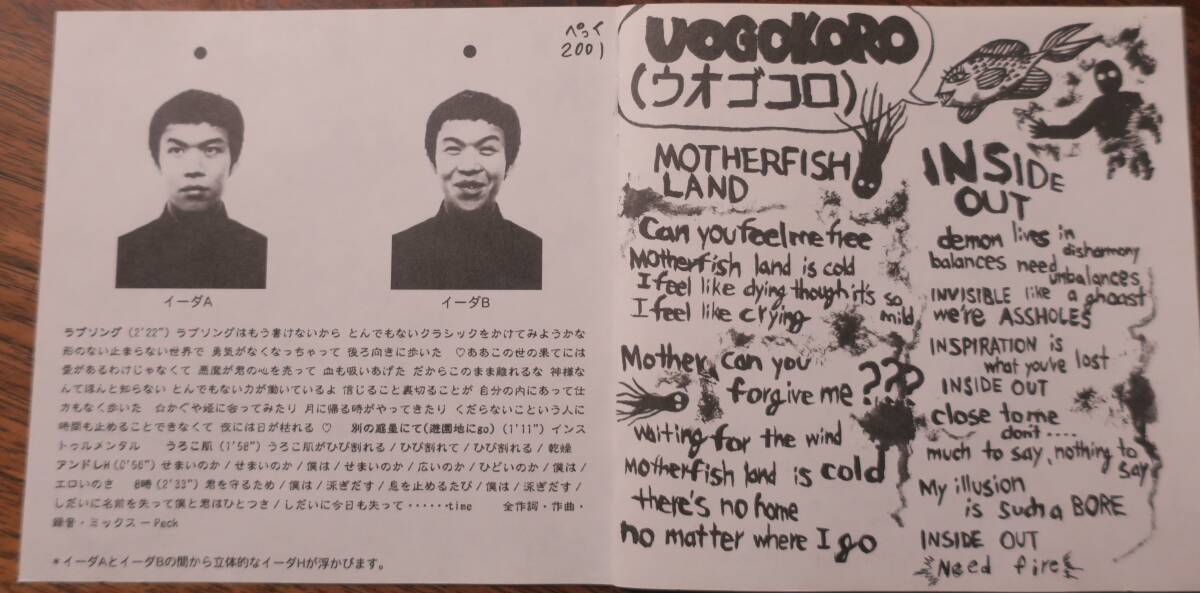 ぺっく
2001
イーダA
イーダB
ラブソング(2'22") ラブソングはもう書けないから とんでもないクラシックをかけてみようかな
形のない止まらない世界で 勇気がなくなっちゃって 後ろ向きに歩いた ♡ああこの世の果てには
愛があるわけじゃなくて 悪魔が君の心を売って 血も吸いあげた だからこのまま離れるな 神様な
んてほんと知らない とんでもない力が動いているよ 信じること裏切ることが 自分の内にあって仕
方もなく歩いた ☆かぐや姫に会ってみたり 月に帰る時がやってきたり くだらないこという人に
時間も止めることできなくて 夜には日が枯れる ♡ 別の惑星にて(遊園地にgo)(1'11") インス
トゥルメンタル うろこ肌(1'58") うろこ肌がひび割れる/ひび割れて/ひび割れる/乾燥
アンドレW(0'56") せまいのか/せまいのか/僕は/せまいのか/広いのか/ひどいのか/僕は/
エロいのさ 8時(2'33") 君を守るため/僕は/泳ぎだす/息を止めるたび/僕は/泳ぎだす/
しだいに名前を失って僕と君はひとつさ/しだいに今日も失って‥‥‥time 全作詞・作曲・
録音・ミックス ー Peck
*イーダAとイーダBの間から立体的なイーダHが浮かびます。
UOGOKORO
(ウオゴコロ)
MOTHERFISH
LAND
Can you feel me free
Motherfish land is cold
I feel like dying though it's so
mild
I feel like crying
Mother, can you
forgive me ???
waiting for the wind
Motherfish land is cold
there's no home
no matter where I go
INSIDE
OUT
demon lives in
disharmony
balances need
unbalances
INVISIBLE like a ghoast
we're ASSHOLES
INSPIRATION is
what you've lost
INSIDE OUT
close to me
don't....
much to say, nothing to
say
My illusion
is such a BORE
INSIDE OUT
Need fire